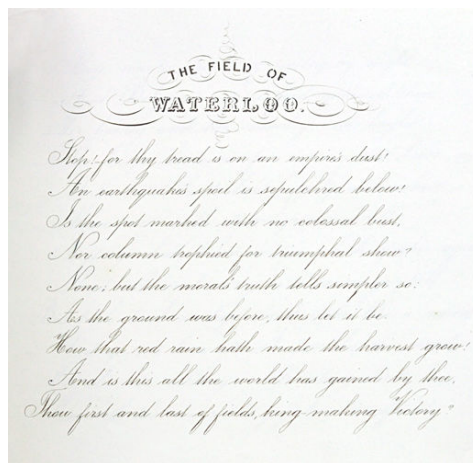 THE FIELD OF
WATERLOO.
Stop! for thy tread is on an empire's dust!
An earthquake's spoil is sepulchred below!
Is the spot marked with no colossal bust,
Nor column trophied for triumphal show?
None; but the moral's truth tells simpler so:
As the ground was before, thus let it be.
How that red rain hath made the harvest grow!
And is this all the world has gained by thee,
Thou first and last of fields, king-making Victory?